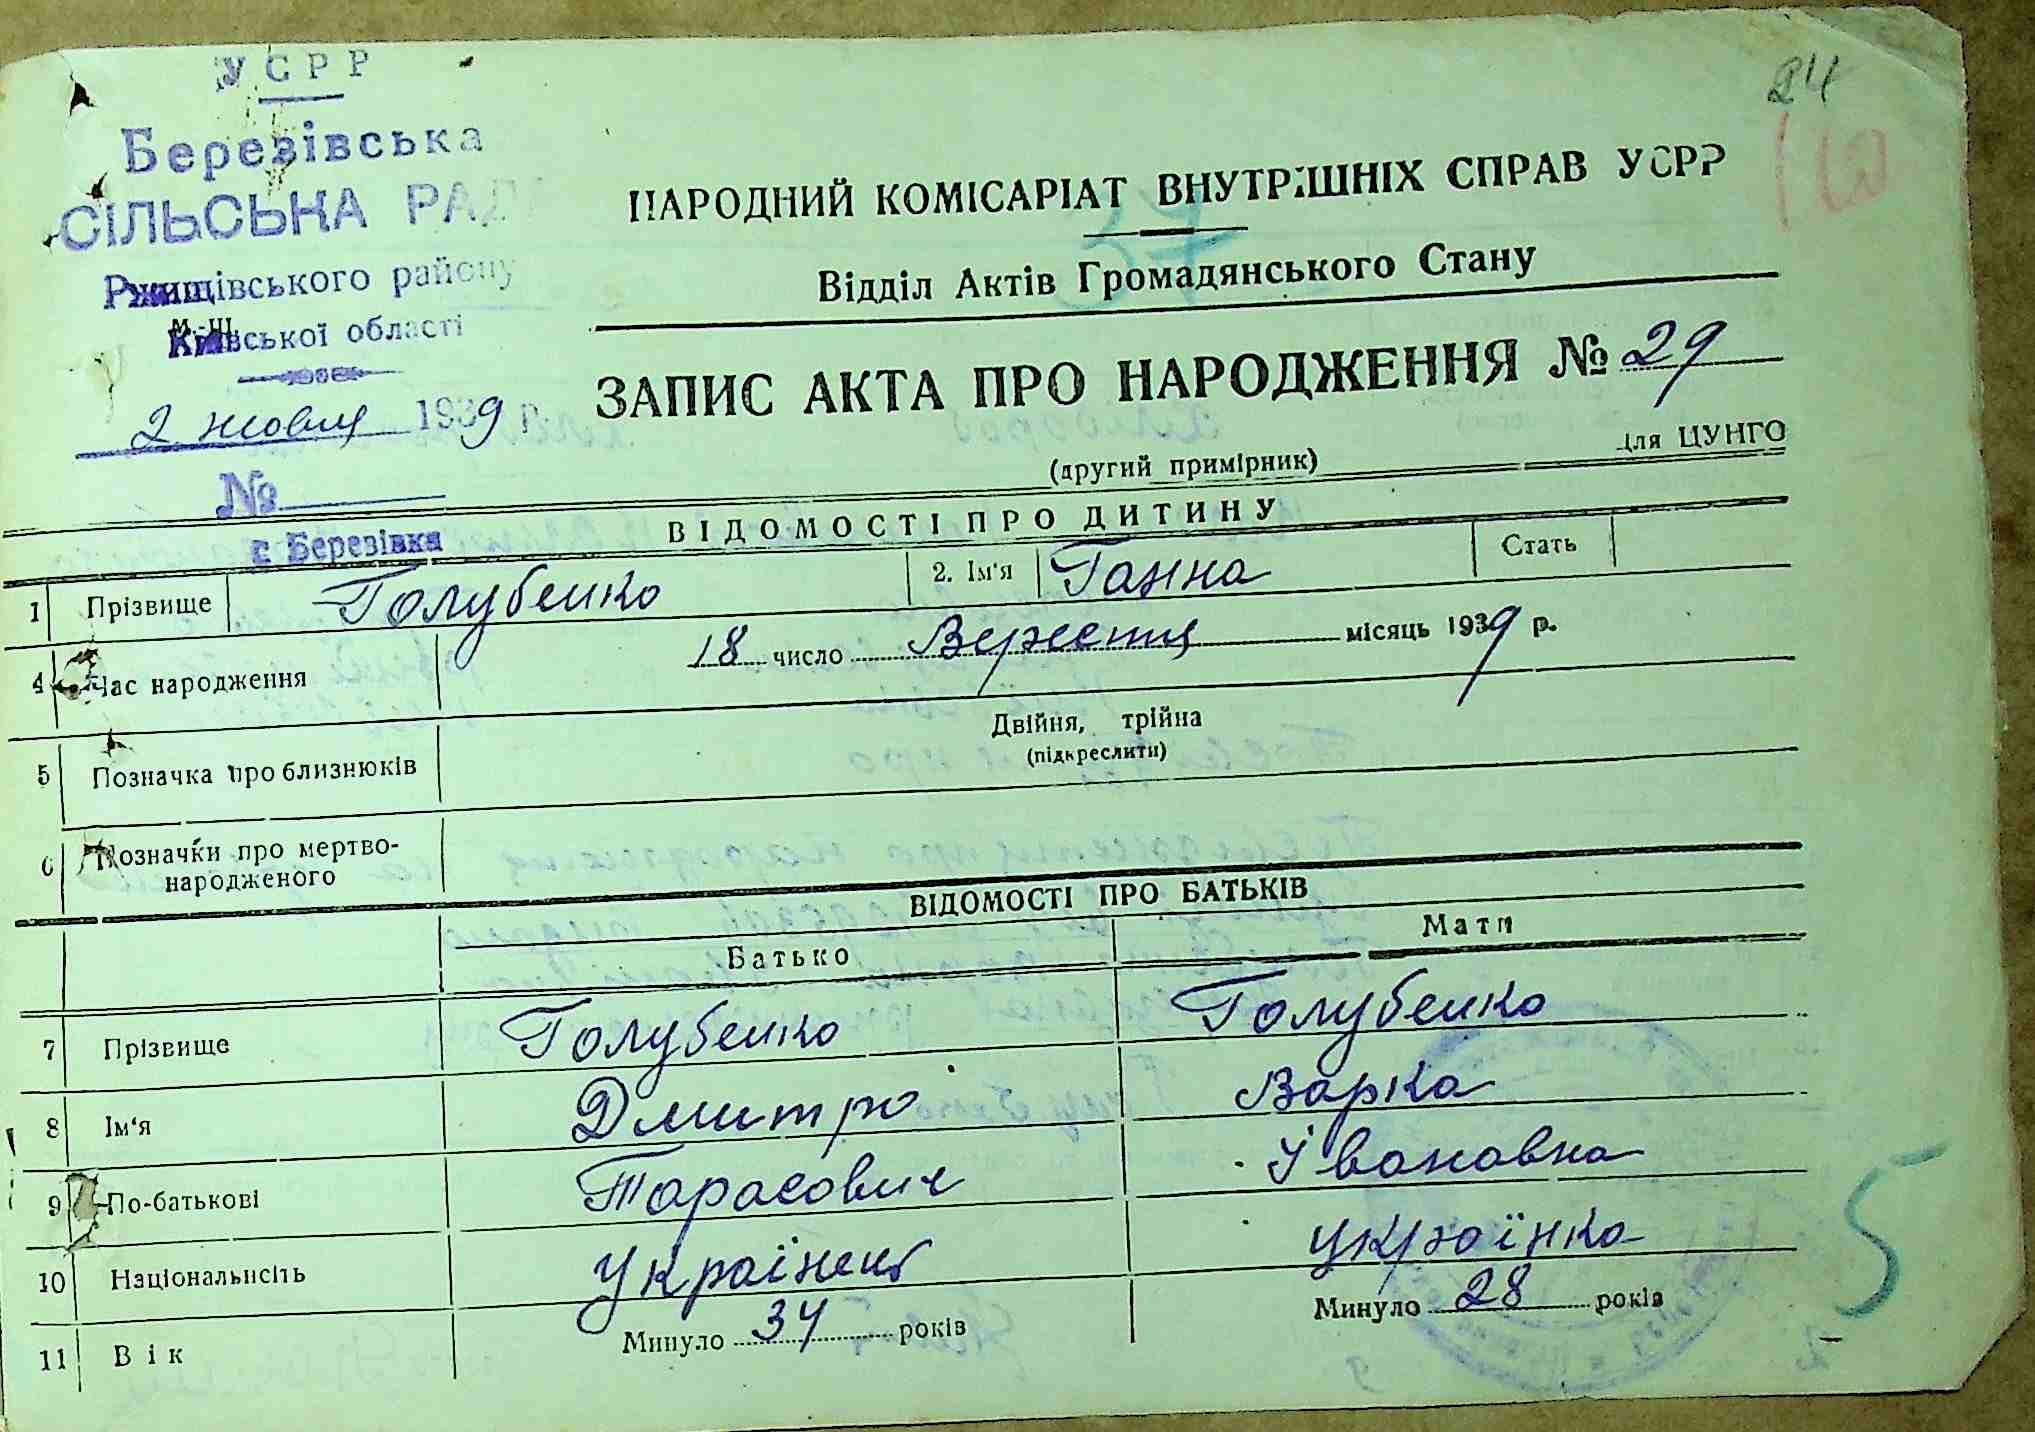 УСРР
Березівська
СІЛЬСЬКА РАДА
Ржищівського району
М.-Ш.
Київської області
2 жовтня 1939 р.
№
с Березівка
24
НАРОДНИЙ КОМІСАРІАТ ВНУТРІШНІХ СПРАВ УСРР
37
Відділ Актів Громадянського Стану
ЗАПИС АКТА ПРО НАРОДЖЕННЯ № 29
(другий примірник)
для ЦУНГО
ВІДОМОСТІ ПРО ДИТИНУ
1 Прізвище Голубенко 2. Ім'я Ганна Стать
4 Час народження 18 число Вересня місяць 1939 р.
5 Позначка про близнюків Двійня, трійна
(підкреслити)
6 Позначки про мертво-
народженого
ВІДОМОСТІ ПРО БАТЬКІВ
Батько Мати
7 Прізвище Голубенко Голубенко
8 Ім'я Дмитро Варка
9 По-батькові Тарасович Івановна
10 Національність Українець українка
11 Вік Минуло 34 років Минуло 28 років
5